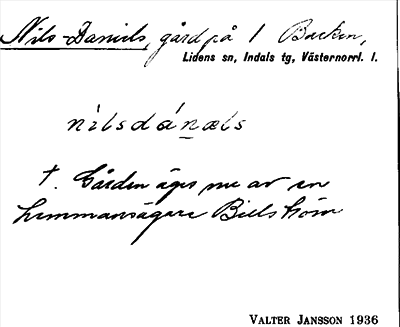 Nils-Daniels, gård på 1 Backen,
Lidens sn, Indals tg, Västernorrl. l.
nilsdánæls
†. Gården äges nu av en
hemmansägare Billström
VALTER JANSSON 1936